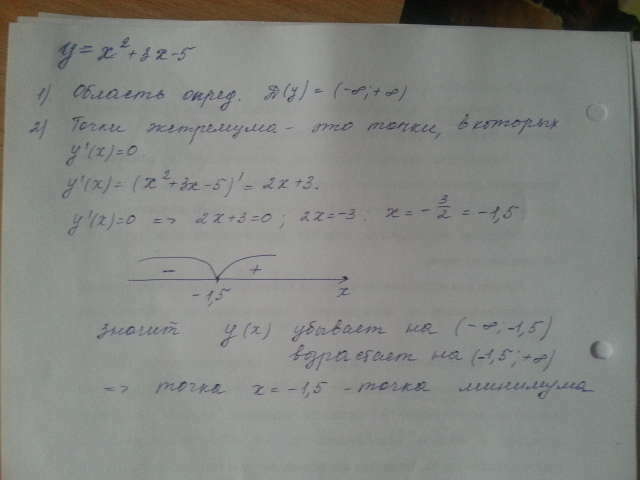 y = x² + 3x - 5
1) Область опред. D(y) = (-∞; +∞)
2) Точки экстремума - это точки, в которых
y'(x)=0
y'(x) = (x² + 3x - 5)' = 2x + 3.
y'(x)=0 => 2x+3=0; 2x=-3. x = -3/2 = -1,5
- +
-1,5 x
значит y(x) убывает на (-∞, -1,5)
взрастает на (-1,5; +∞)
=> точка x = -1,5 - точка минимума